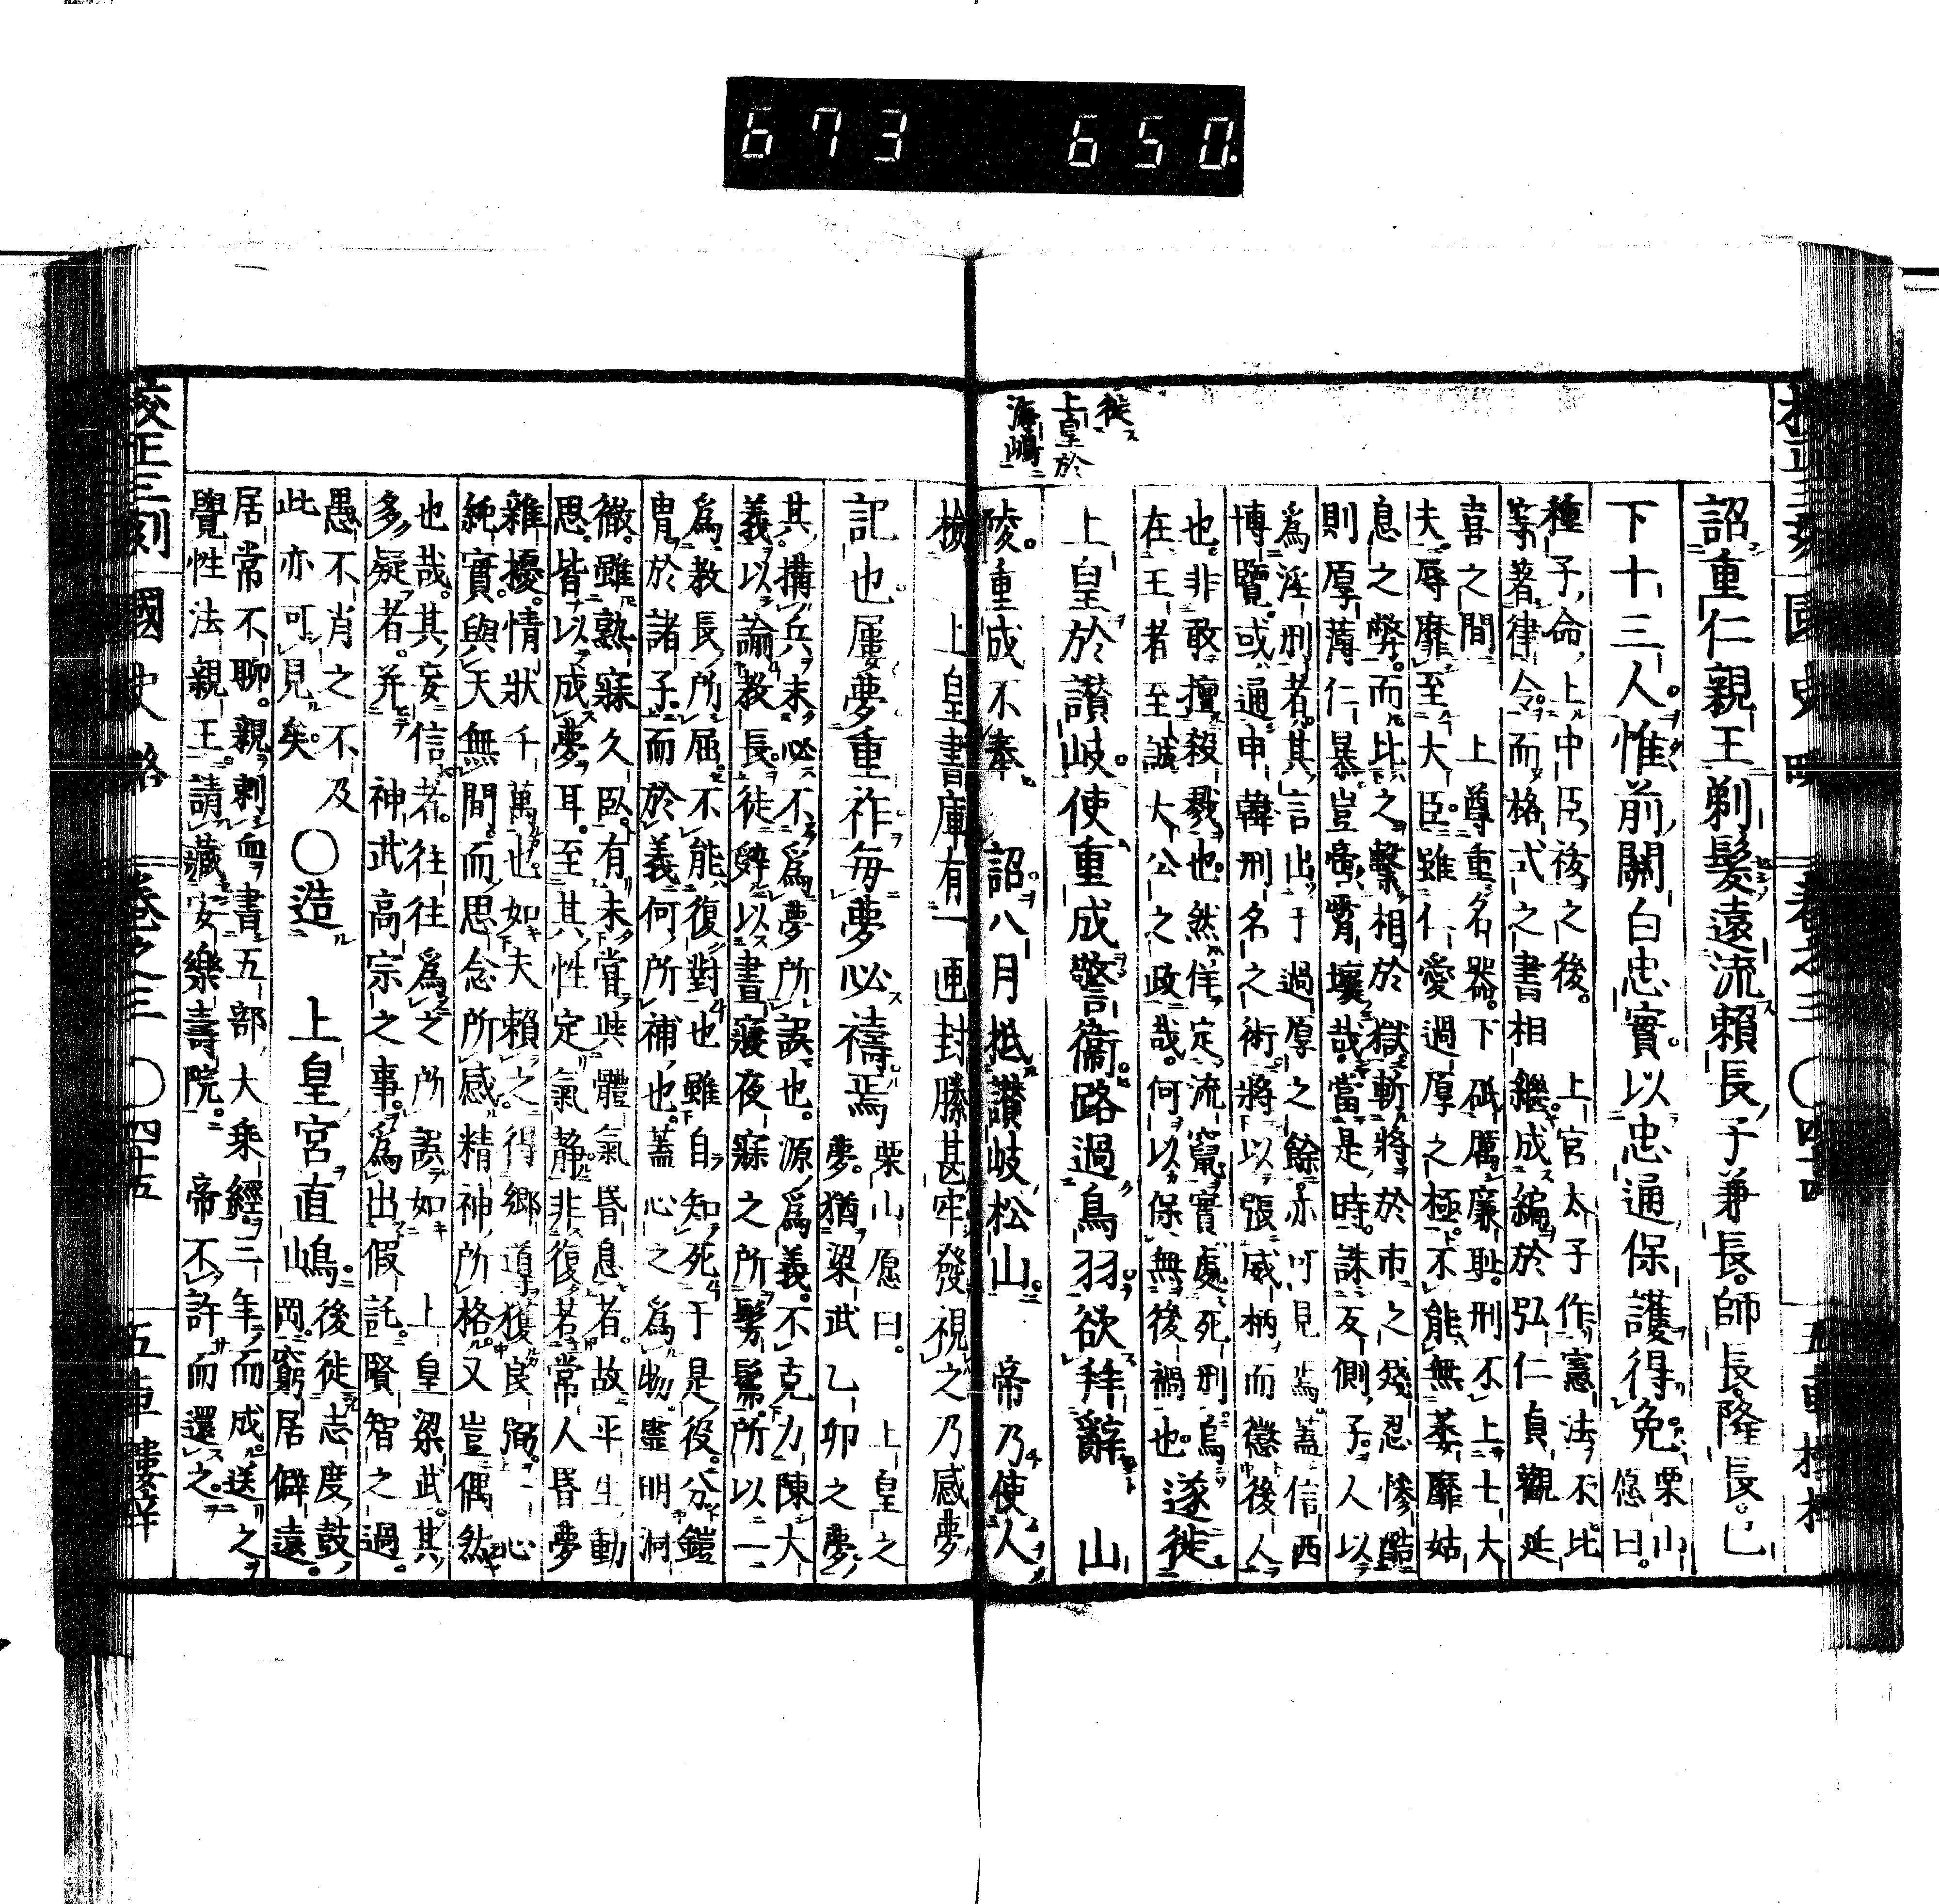 673 650
徙
上皇於
海嶋
詔重仁親王剃髮遠流賴長子兼長師長隆長已
下十三人惟前關白忠實以忠通保護得免栗山愿曰
種子命上中臣祓之後 上官太子作憲法不比
等著律令而格式之書相繼成編於弘仁貞觀延
喜之間 上尊重名器下砥厲廉耻刑不上士大
夫辱靡至大臣雖仁愛過厚之極不能無萎靡姑
息之弊而比之繫相於獄斬將於市之殘忍慘酷
則厚薄仁暴豈啻霄壤哉當是時誅反側子人以
爲淫刑者其言出于過厚之餘亦可見焉蓋信西
博覽或通申韓刑名之術將以張威柄而懲後人
也非敢擅殺戮也然佯定流竄實處死刑烏
在王者至誠大公之政哉何以保無後禍也遂徙
上皇於讃岐使重成警衞路過鳥羽欲拜辭 山
陵重成不奉 詔八月抵讃岐松山 帝乃使人
撿 上皇書庫有一匣封縢甚牢發視之乃感夢
記也屢夢重祚每夢必禱焉栗山愿曰 上皇之
夢猶梁武乙卯之夢
其搆兵未必不爲夢所誤也源爲義不克力陳大
義以諭敎長徒辭以晝寢夜寐之所髣髴所以一
爲敎長所屈不能復對也雖自知死于是役分鎧
胄於諸子而於義何所補也蓋心之爲物靈明洞
徹雖熟寐久臥有未嘗與體氣昏息者故平生動
思皆以成夢耳至其性定氣静非復若常人昏夢
雜擾情狀千萬也如夫賴之得鄕導獲良弼一心
純實與天無間而思念所感精神所格又豈偶然
也哉其妄信者往往爲之所誤如 上皇梁武其
多疑者并 神武高宗之事爲出假託賢智之過
愚不肖之不及
此亦可見矣○造 上皇宮直嶋後徙志度鼓
岡窮居僻遠
居常不聊親刺血書五部大乘經三年而成送之
覺性法親王請藏安樂壽院 帝不許而還之
校正三刻 國史略 卷之三 ○四十五 五車樓梓